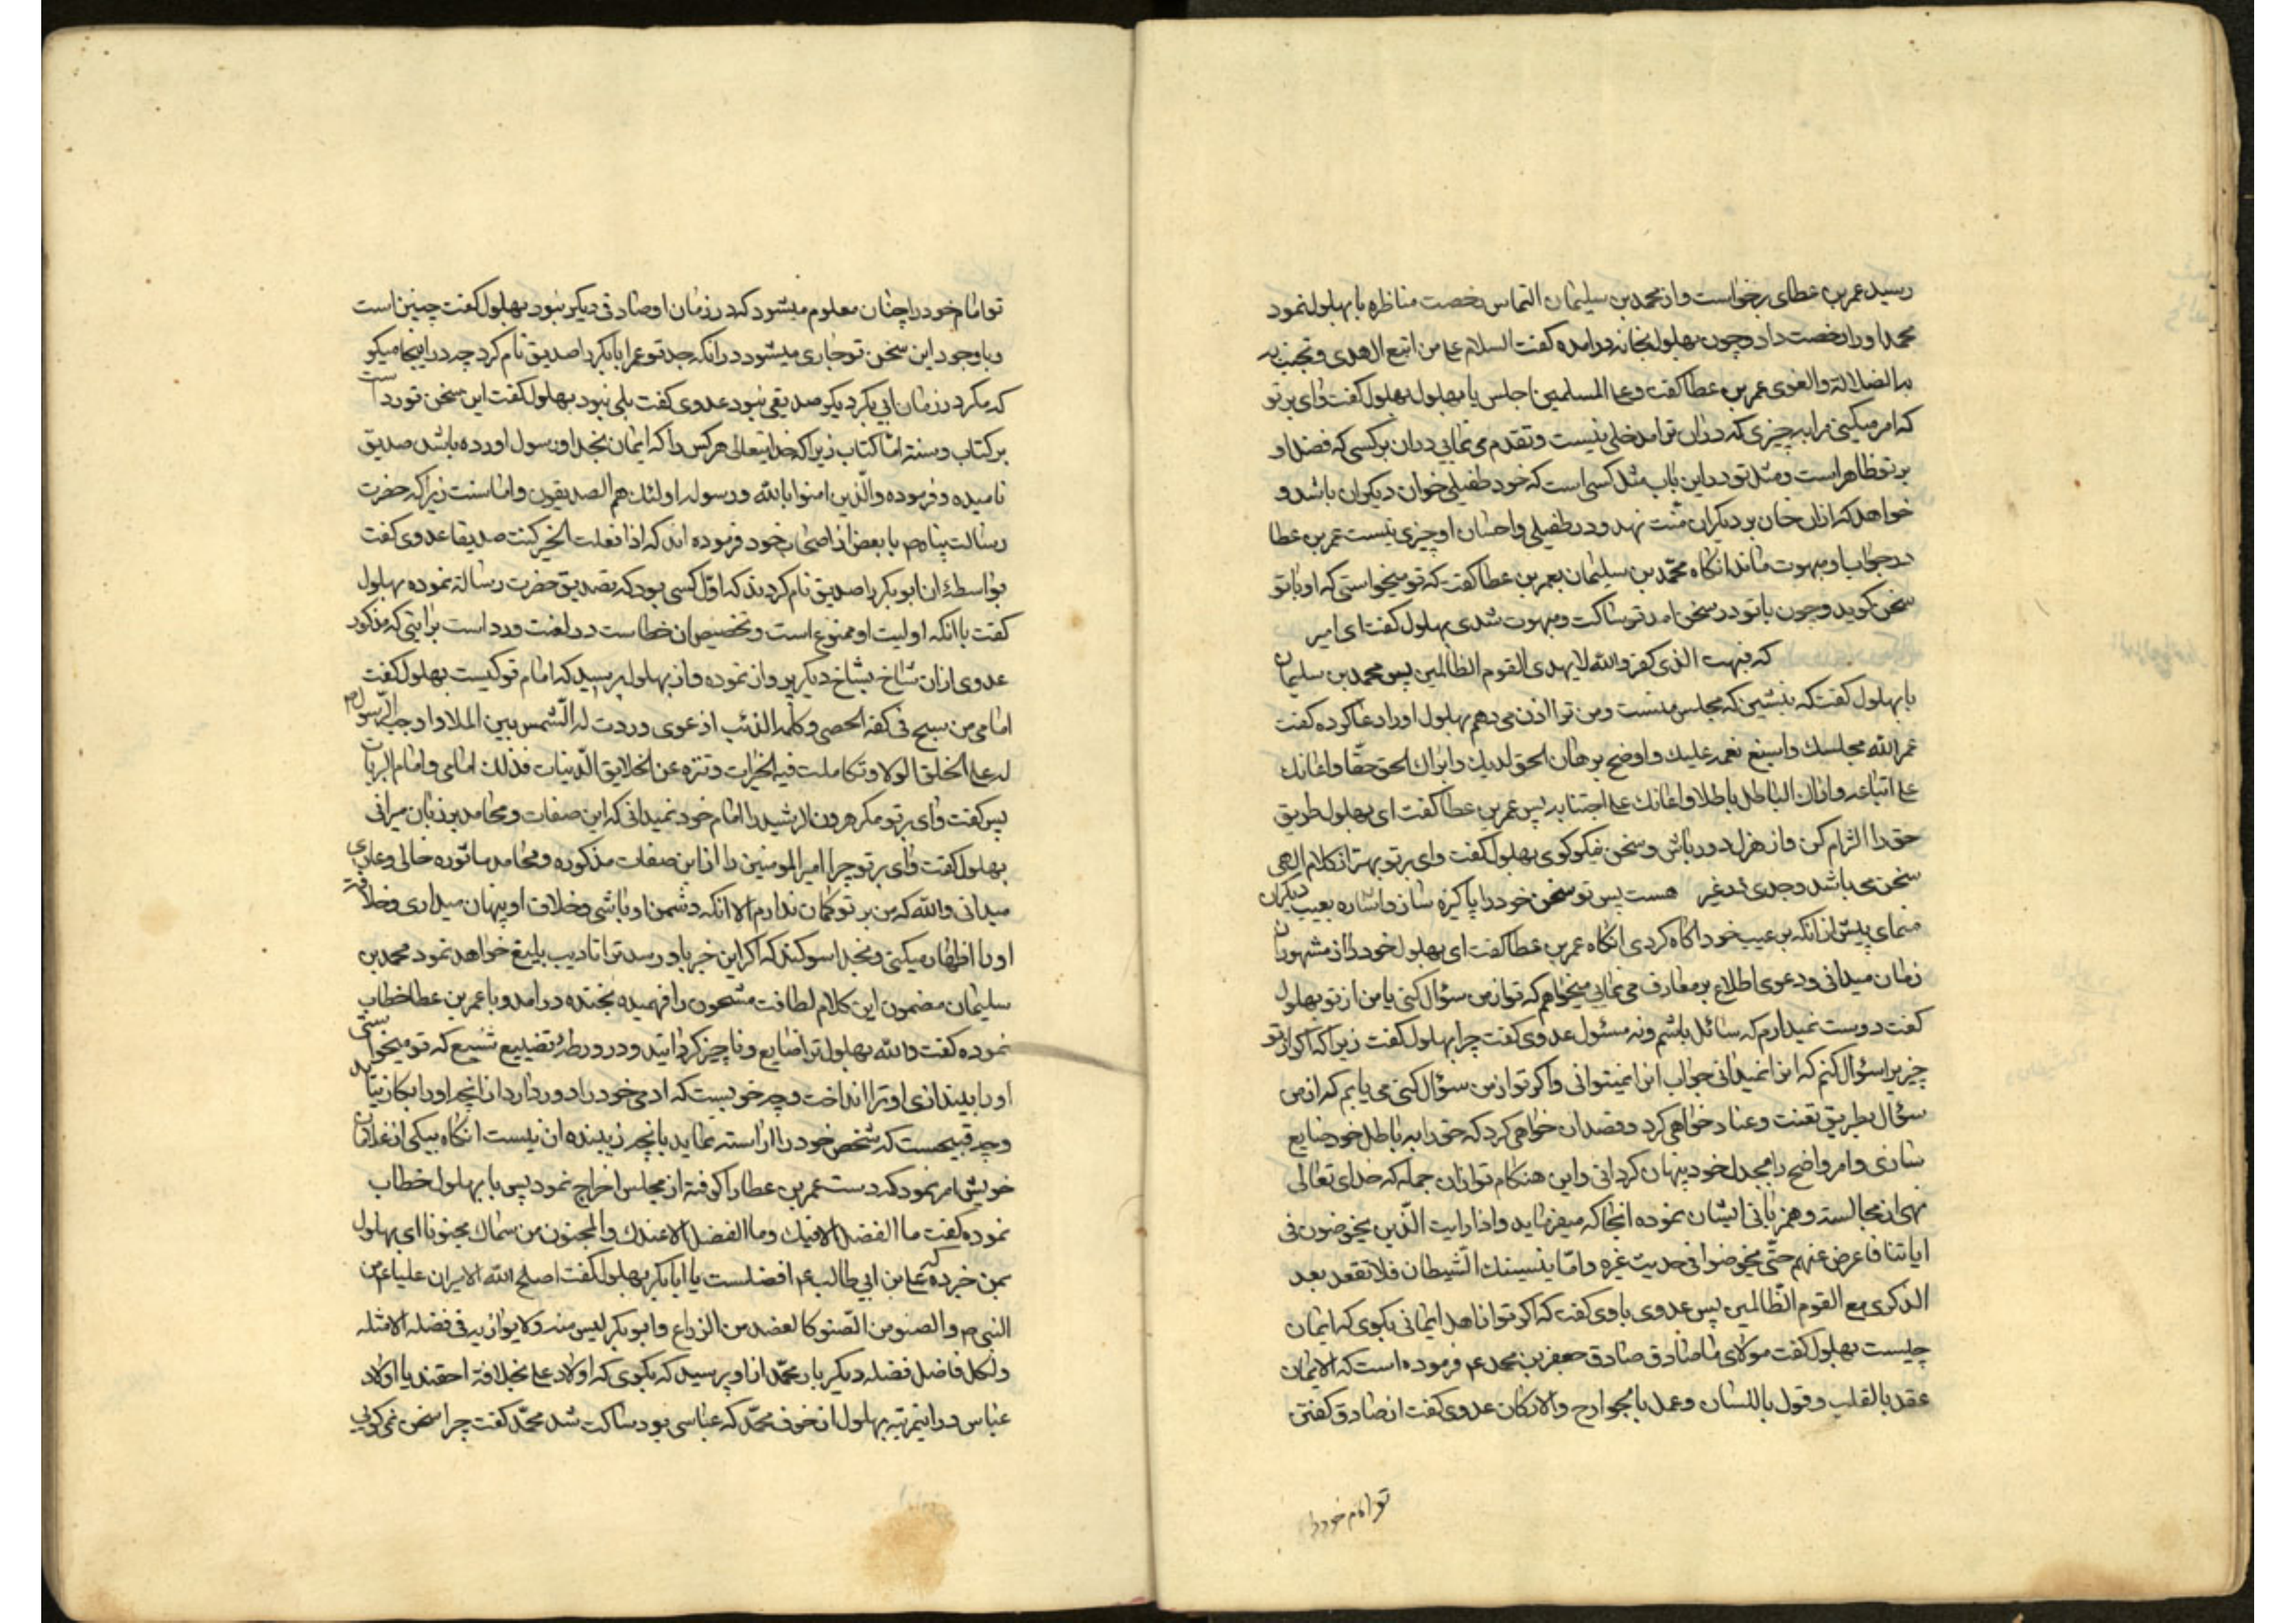 رسید عمر بن عطای برخواست و از محمد بن سلیمان التماس رخصت مناظره با بهلول نمود
محمد او را رخصت داد و چون بهلول بخانه درامده گفت السلام علی من اتبع الهدی و تجنب
الضلالة و الغوی عمر بن عطا گفت و علی المسلمین اجلس یا بهلول بهلول گفت وای بر تو
که امر میکنی مرا به چیزی که در ان ترا مدخلی نیست و تقدم می نمایی دران بر کسی که فضل او
بر تو ظاهر است و مثل تو در این باب مثل کسی است که خود طفیلی خوان دیکران باشد و
خواهد که ازان خان بر دیکران منت نهد و در طفیلی و احسان او چیزی نیست عمر بن عطا
در جواب او مبهوت ماند انکاه محمد بن سلیمان بعمر بن عطا گفت که تو میخواستی که او با تو
سخن کوید و چون با تو در سخن امد تو ساکت و مبهوت شدی بهلول گفت ای امیر
که فبهت الذی کفر والله لا یهدی القوم الظالمین پس محمد بن سلیمان
با بهلول گفت که بنشین که مجلس منست و من ترا اذن می دهم بهلول او را دعا کرده گفت
عمر الله مجلسک و اسبغ نعمه علیک و اوضح برهان الحق لدیک و اراک الحق حقا و اعانک
علی اتباعه و اراک الباطل باطلا و اعانک علی اجتنابه پس عمر بن عطا گفت ای بهلول طریق
حق را الزام کن و از هزل دور باش و سخن نیکو کوی بهلول گفت وای بر تو بهتر از کلام الهی
سخن می باشد و جدی غیر هست پس تو سخن خود را پاکیزه ساز و اشاره بعیب دیکران
منمای پیش از انکه بر عیب خود اکاه کردی انکاه عمر بن عطا گفت ای بهلول خود را از مشهوران
زمان میدانی و دعوی اطلاع بر معارف می نمایی میخواهم که تو از من سؤال کنی یا من از تو بهلول
گفت دوست نمیدارم که سائل باشم و نه مسئول عدوی گفت چرا بهلول گفت زیرا که اکر از تو
چیزی سؤال کنم که انرا نمیدانی جواب انرا نمیتوانی و اکر تو از من سؤال کنی می یابم که از من
سؤال بطریق تعنت و عناد خواهی کرد و قصد ان خواهی کرد که حق را به باطل خود ضایع
سازی و امر واضح را بجدل خود پنهان کردانی و این هنکام تو ازان جمله که خدای تعالی
نهی از مجالسته و همزبانی ایشان نموده انجا که میفرماید و اذا رایت الذین یخوضون فی
ایاتنا فاعرض عنهم حتی یخوضوا فی حدیث غیره و اما ینسینک الشیطان فلا تقعد بعد
الذکری مع القوم الظالمین پس عدوی با وی گفت که اکر تو از اهل ایمانی بکوی که ایمان
چیست بهلول گفت مولای ما صادق صادق جعفر بن محمد ع فرموده است که الایمان
عقد بالقلب و قول باللسان و عمل بالجوارح والارکان عدوی گفت از صادق گفتن
تو امام خود را
تو امام خود را چنان معلوم میشود که در زمان او صادقی دیکر نبود بهلول گفت چنین است
و با وجود این سخن تو جاری میشود در انکه جد تو عمر ابابکر را صدیق نام کرد چه در اینجا میکو
که مکر در زمان ابی بکر دیکر صدیقی نبود عدوی گفت بلی نبود بهلول گفت این سخن تو رد است
بر کتاب و سنة اما کتاب زیرا که خدایتعالی هر کس را که ایمان بخدا و رسول اورده باشد صدیق
نامیده و فرموده والذین امنوا بالله و رسوله اولئک هم الصدیقون و اما سنت زیرا که حضرت
رسالت پناه ص با بعض از اصحاب خود فرموده اند که اذا فعلت الخیر کنت صدیقا عدوی گفت
بواسطه ان ابوبکر را صدیق نام کردند که اول کسی بود که تصدیق حضرت رسالة نموده بهلول
گفت با انکه اولیت او ممنوع است و تخصیص ان خطاست در لغت و رد است برایتی که مذکور
عدوی ازان شاخ بشاخ دیکر پرواز نموده و از بهلول پرسید که امام تو کیست بهلول گفت
امامی من سبح فی کفه الحصی و کلمه الذئب اذ عوی و ردت له الشمس بین الملا و اوجب الرسول ص
له علی الخلق الولا و تکاملت فیه الخیرات و تنزه عن الخلایق الدنیات فذلک امامی و امام البریات
پس گفت وای بر تو مکر هرون الرشید را امام خود نمیدانی که این صفات و محامد بر زبان میرانی
بهلول گفت وای بر تو چرا امیر المومنین را از این صفات مذکوره و محامد ماثوره خالی و عاری
میدانی والله که من بر تو کمان ندارم الا انکه دشمن او باشی و خلاف او پنهان میداری و خلافت
او را اظهار میکنی و بخدا سوکند که اکر این خبر باو رسد ترا تادیب بلیغ خواهد نمود محمد بن
سلیمان مضمون این کلام لطافت مشحون را فهمیده بخنده درامد و با عمر بن عطا خطاب
نموده گفت والله بهلول ترا ضایع و ناچیز کردانید و در ورطهٔ تضییع شنیع که تو میخواستی
او را بیندازی او ترا انداخت و چه خوبست که ادمی خود را دور دارد از انچه او را بکار نیاید
و چه قبیحست که شخص خود را اراسته نماید بانچه زیبنده ان نیست انکاه بیکی از غلامان
خویش امر نمود که دست عمر بن عطا را کرفته از مجلس اخراج نمود پس با بهلول خطاب
نموده گفت ما الفضل الا فیک و ما الفضل الا عندک والمجنون من سماک مجنونا ای بهلول
بمن خبر ده که علی بن ابی طالب ع افضلست یا ابابکر بهلول گفت اصلح الله الامیر ان علیا ع من
النبی ص والصنو من الصنو کالعضد من الذراع و ابوبکر لیس منه ولا یوازیه فی فضله الا مثله
و لکل فاضل فضله دیکر بار محمد از او پرسید که بکوی که اولاد علی بخلافة احقند یا اولاد
عباس در اینمرتبه بهلول از خوف محمد که عباسی بود ساکت شد محمد گفت چرا سخن نمی کویی